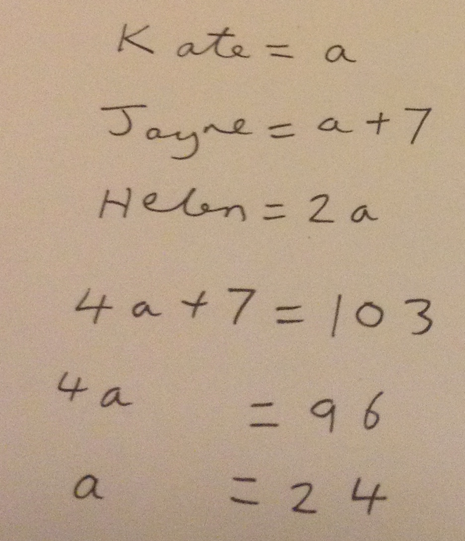 Kate = a
Jayne = a + 7
Helen = 2a
4a + 7 = 103
4a = 96
a = 24